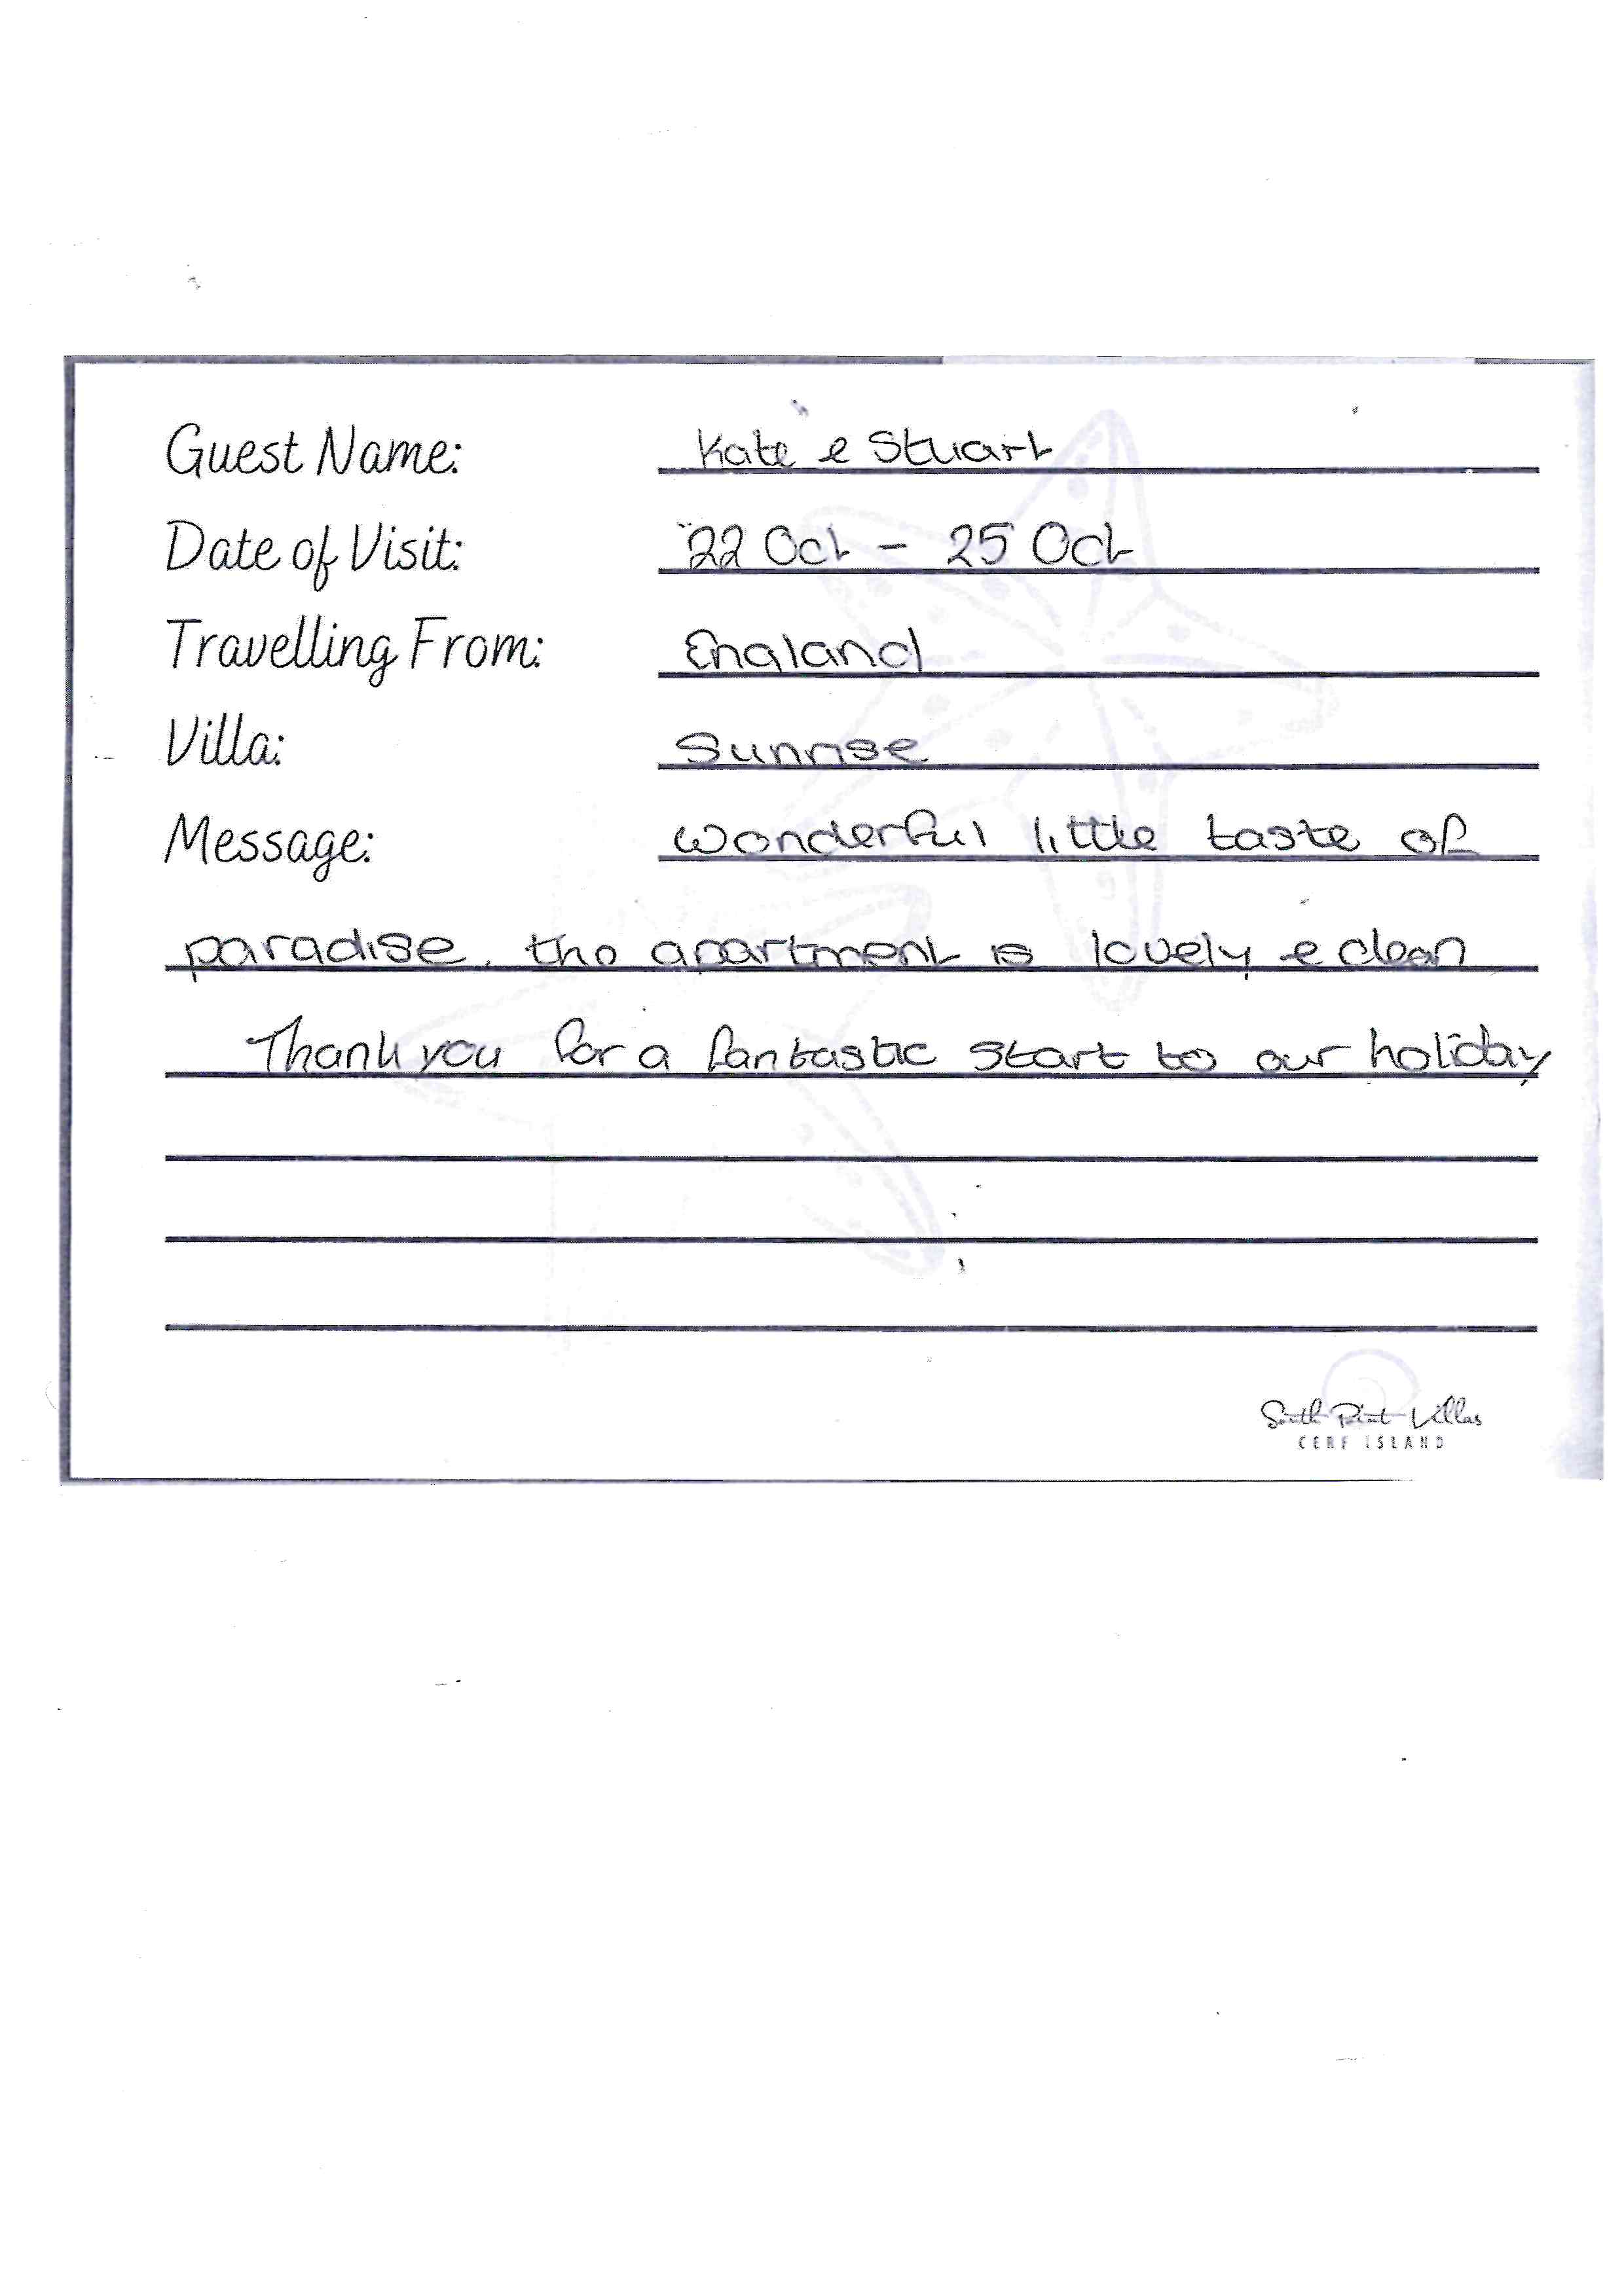 Guest Name: Kate e Stuart
Date of Visit: 22 Oct - 25 Oct
Travelling From: England
Villa: Sunrise
Message: Wonderful little taste of
paradise, the apartment is lovely e clean
Thank you for a fantastic start to our holiday
South Point Villas
CERF ISLAND